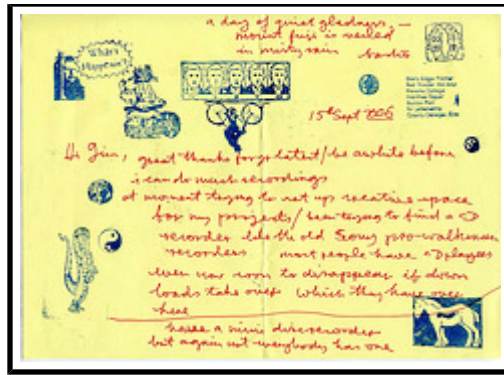 a day of quiet gladness, —
mount fuji is veiled
in misty rain
What's Happenin'?
15th Sept 2006
Hi Jim, great thanks for yr latest / be awhile before
i can do much recordings
at moment trying to set up creative space
for my projects / been trying to find a CD
recorder like the old Sony pro-walkman
recorders most people have CD players
even now soon to disappear if down
loads take over which they have over
here
have a mini disc recorder
but again not everybody has one